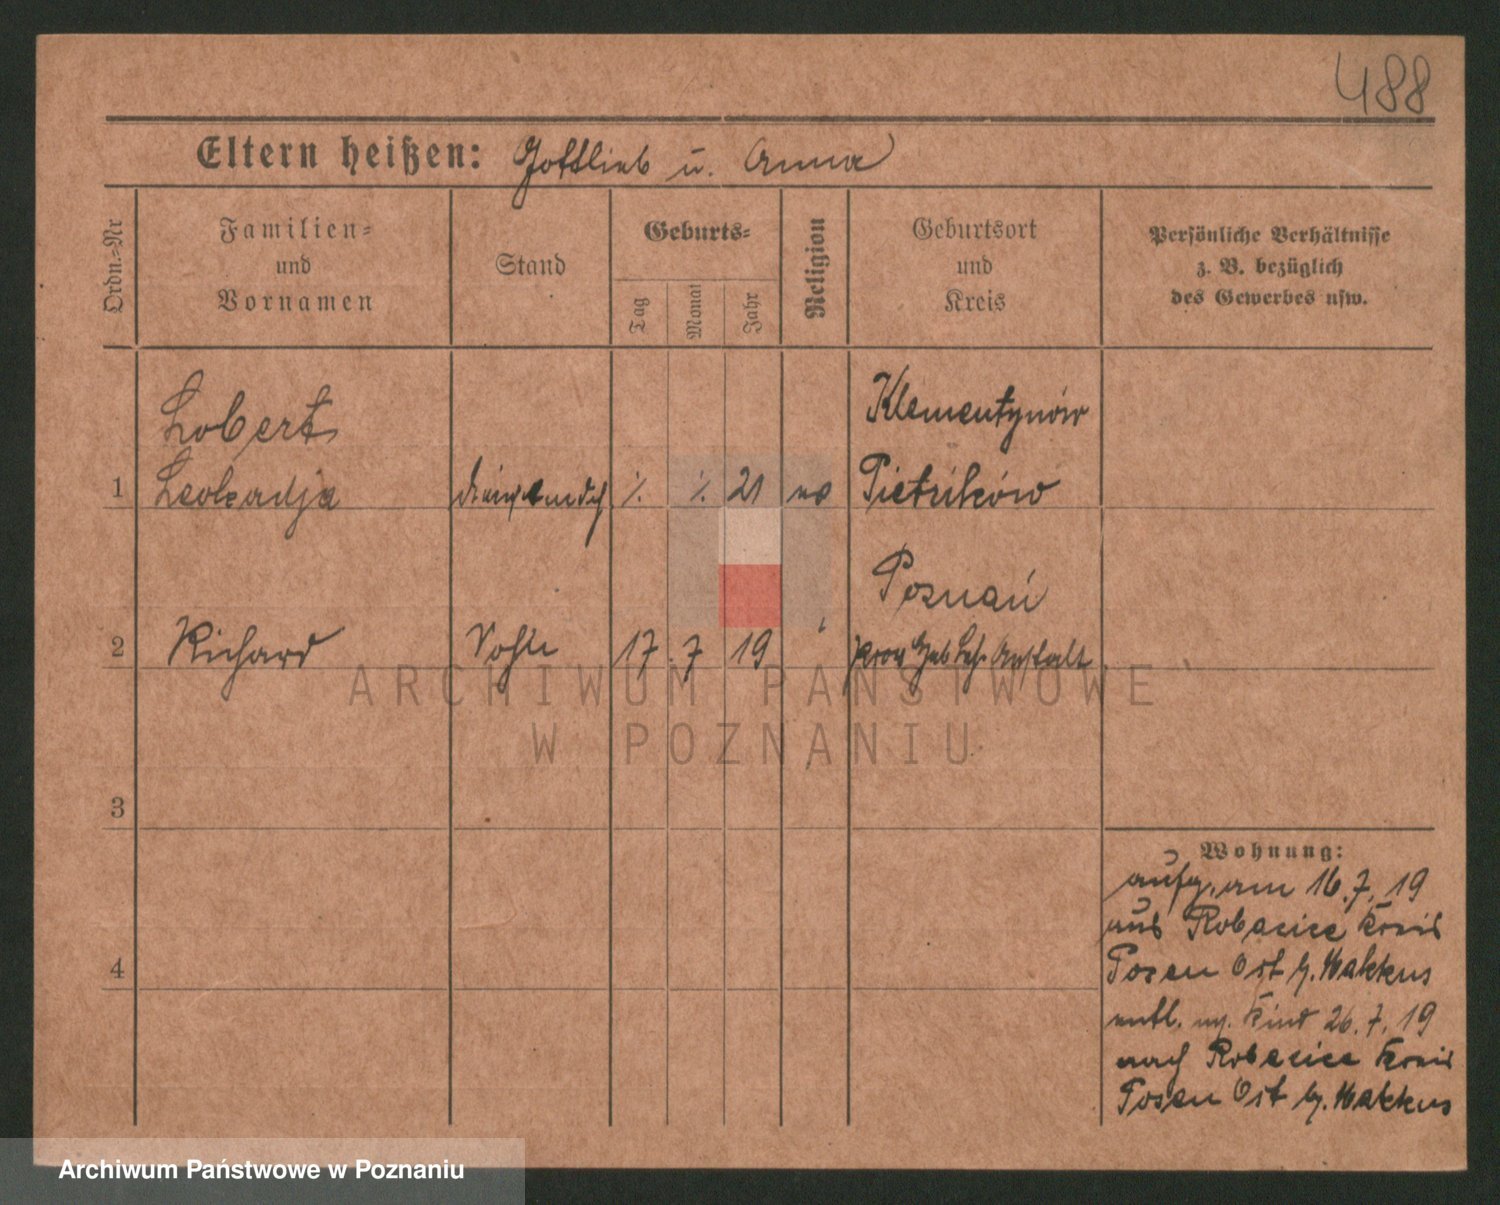 488
Eltern heißen: Gottlieb u. Anna
Ordn.-Nr
Familien-
und
Vornamen
Stand
Geburts-
Tag
Monat
Jahr
Religion
Geburtsort
und
Kreis
Persönliche Verhältnisse
z. B. bezüglich
des Gewerbes usw.
Lobert
Klementynów
1 Leokadja ·/. ·/. 21 Pietrików
Poznań
2 Richard Sohn 17 7 19 prov Heb Leh. Anstalt
3
4
Wohnung:
aufg. am 16.7.19
aus Robacice Kreis
Posen Ost b. Makkus
entl. m. Kind 26.7.19
nach Robacice Kreis
Posen Ost b. Makkus
ARCHIWUM PAŃSTWOWE
W POZNANIU
Archiwum Państwowe w Poznaniu